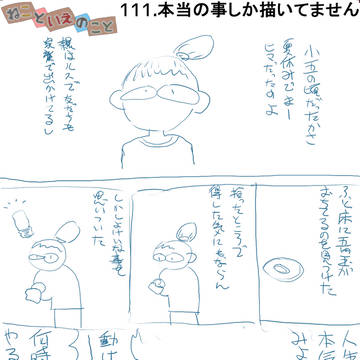 ねこといえのこと
111.本当の事しか描いてません
小五の頃だったかさ
夏休みでまー
ヒマだったのよ
親はルスで友だちも
家族で出かけてるし
ふと床に五円玉が
おちてるのを見つけた
拾ったところで
得した気にもならん
しかしよけいな事を
思いついた
人生
本気
みよ
動け
何時
やる